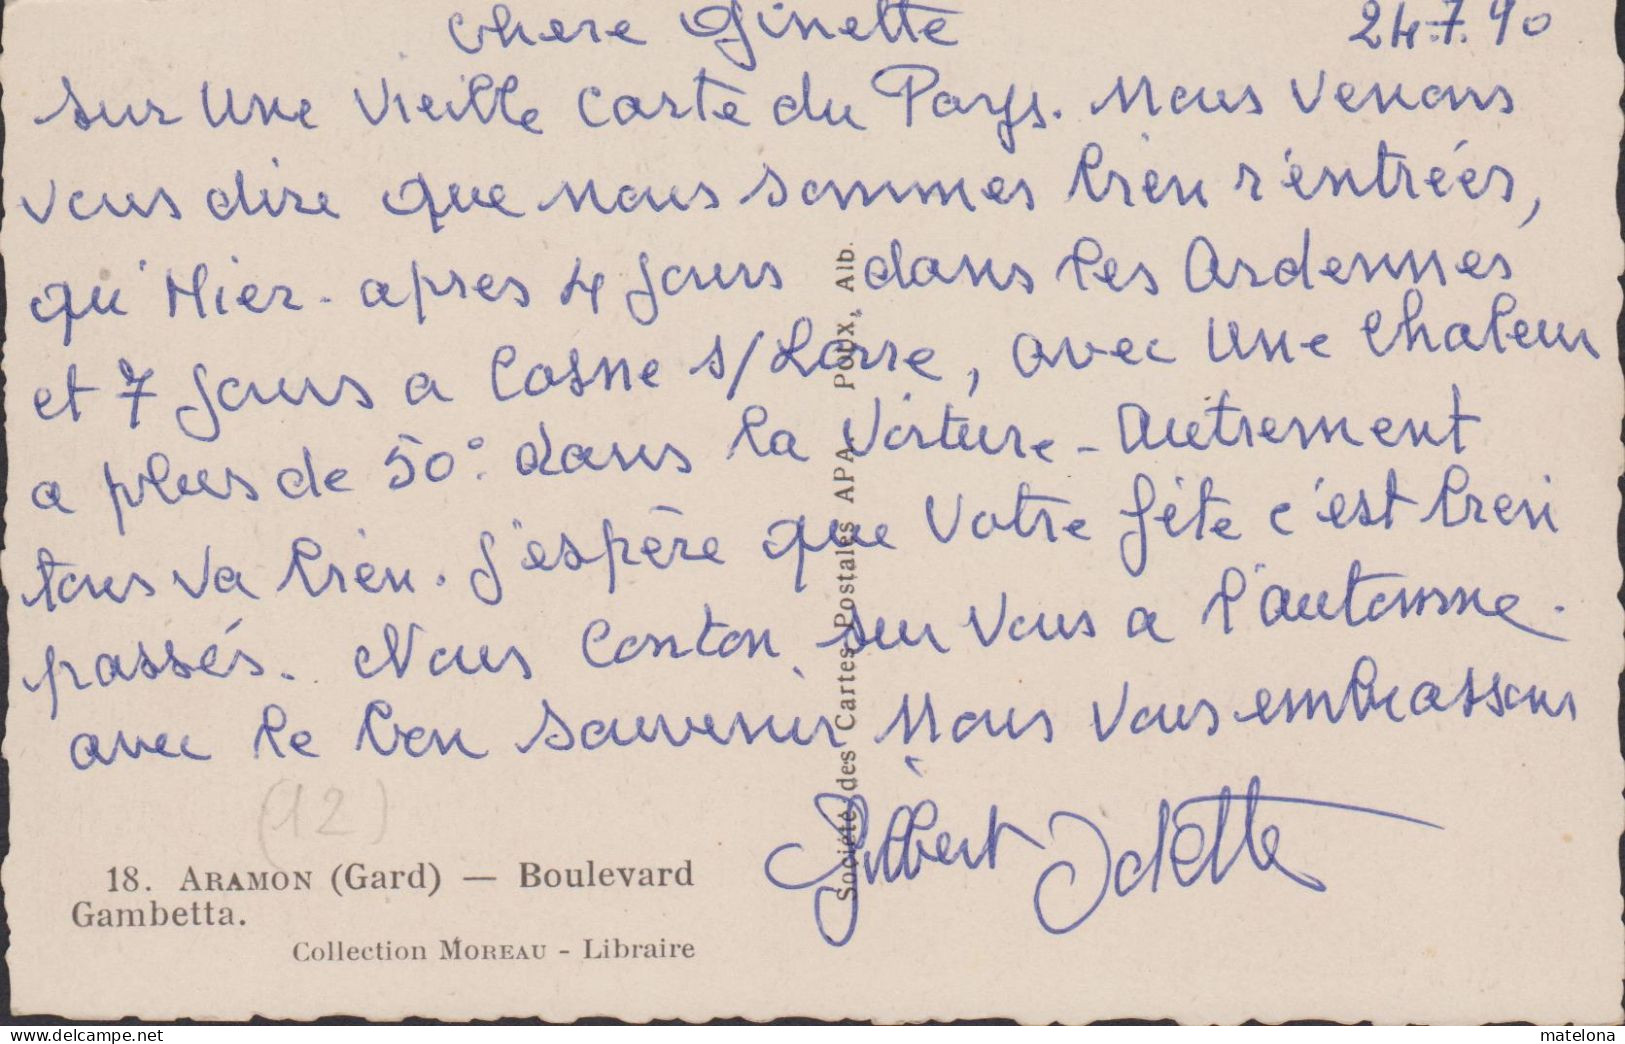 chere Ginette 24.7.90
sur Une Vieille Carte du Pays. Nous Venons
vous dire que nous sommes bien rentrées,
qu'Hier. apres 4 jours dans les Ardennes
et 7 jours a Cosne s/Loire, avec Une Chaleur
a plus de 50°. dans la Voiture - Autrement
tous va bien. J'espère que Votre fête c'est bien
passés. Nous Conton sur Vous a l'automne.
avec le bon souvenir Nous Vous embrassons
Gilbert Odette
(12)
18. ARAMON (Gard) — Boulevard
Gambetta.
Collection MOREAU - Libraire
Société des Cartes Postales APA. POUX, Alb.
delcampe.net
matelona